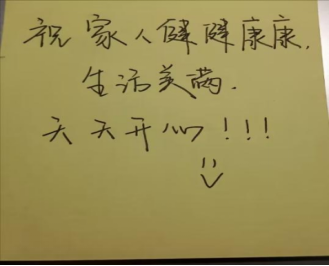 祝家人健健康康,
生活美满.
天天开心!!!